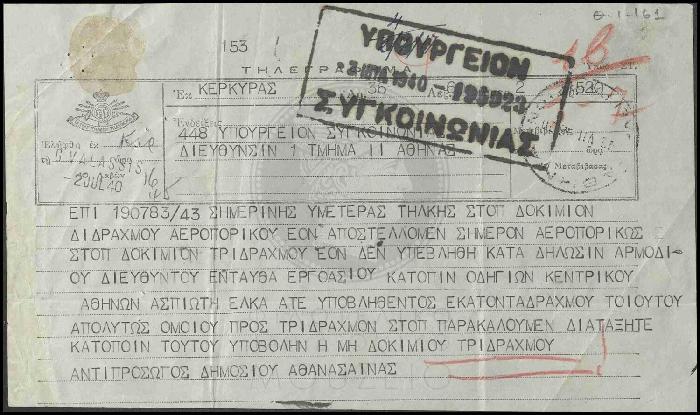 Θ-1-161
153
ΤΗΛΕΓΡΑΦ
ΥΠΟΥΡΓΕΙΟΝ
196023
ΣΥΓΚΟΙΝΩΝΙΑΣ
Ἐκ ΚΕΡΚΥΡΑΣ 35
448 ΥΠΟΥΡΓΕΙΟΝ ΣΥΓΚΟΙΝΩΝΙ
ΔΙΕΥΘΥΝΣΙΝ 1 ΤΜΗΜΑ ΙΙ ΑΘΗΝΑΣ
Ἐλήφθη ἐκ
-2 JUL 40
ΕΠΙ 190783/43 ΣΗΜΕΡΙΝΗΣ ΥΜΕΤΕΡΑΣ ΤΗΛΚΗΣ ΣΤΟΠ ΔΟΚΙΜΙΟΝ
ΔΙΔΡΑΧΜΟΥ ΑΕΡΟΠΟΡΙΚΟΥ ΕΟΝ ΑΠΟΣΤΕΛΛΟΜΕΝ ΣΗΜΕΡΟΝ ΑΕΡΟΠΟΡΙΚΩΣ
ΣΤΟΠ ΔΟΚΙΜΙΟΝ ΤΡΙΔΡΑΧΜΟΥ ΕΟΝ ΔΕΝ ΥΠΕΒΛΗΘΗ ΚΑΤΑ ΔΗΛΩΣΙΝ ΑΡΜΟΔΙ-
ΟΥ ΔΙΕΥΘΥΝΤΟΥ ΕΝΤΑΥΘΑ ΕΡΓΟΑΣΙΟΥ ΚΑΤΟΠΙΝ ΟΔΗΓΙΩΝ ΚΕΝΤΡΙΚΟΥ
ΑΘΗΝΩΝ ΑΣΠΙΩΤΗ ΕΛΚΑ ΑΤΕ ΥΠΟΒΛΗΘΕΝΤΟΣ ΕΚΑΤΟΝΤΑΔΡΑΧΜΟΥ ΤΟΙΟΥΤΟΥ
ΑΠΟΛΥΤΩΣ ΟΜΟΙΟΥ ΠΡΟΣ ΤΡΙΔΡΑΧΜΟΝ ΣΤΟΠ ΠΑΡΑΚΑΛΟΥΜΕΝ ΔΙΑΤΑΞΗΤΕ
ΚΑΤΟΠΟΙΝ ΤΟΥΤΟΥ ΥΠΟΒΟΛΗΝ Η ΜΗ ΔΟΚΙΜΙΟΥ ΤΡΙΔΡΑΧΜΟΥ
ΑΝΤΙΠΡΟΣΩΓΟΣ ΔΗΜΟΣΙΟΥ ΑΘΑΝΑΣΑΙΝΑΣ